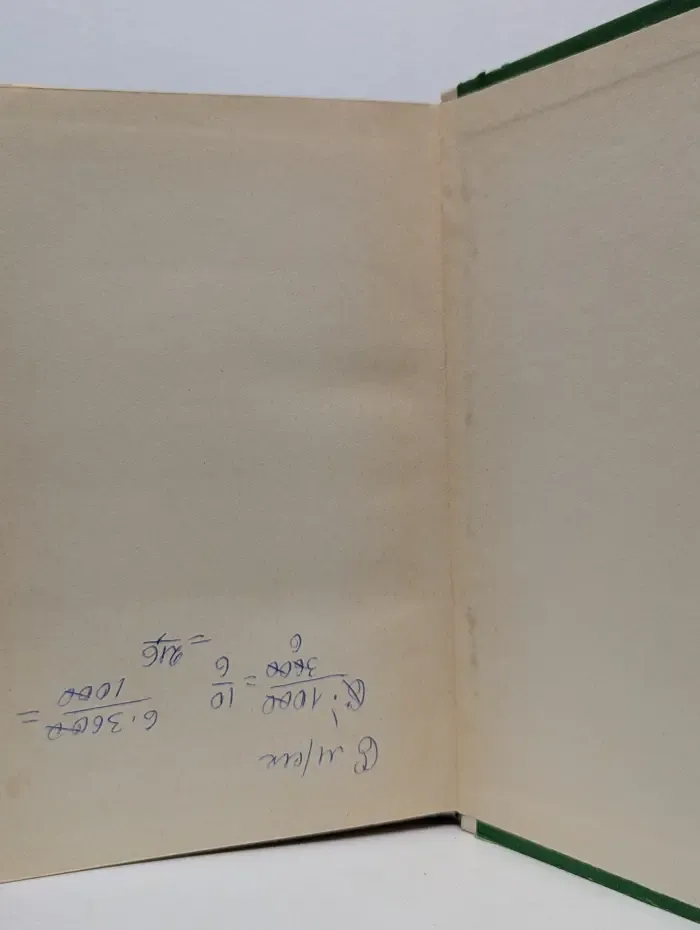 6 м/сек
6·1000/3600 = 10/6
6
6·3600/1000 =
= 216